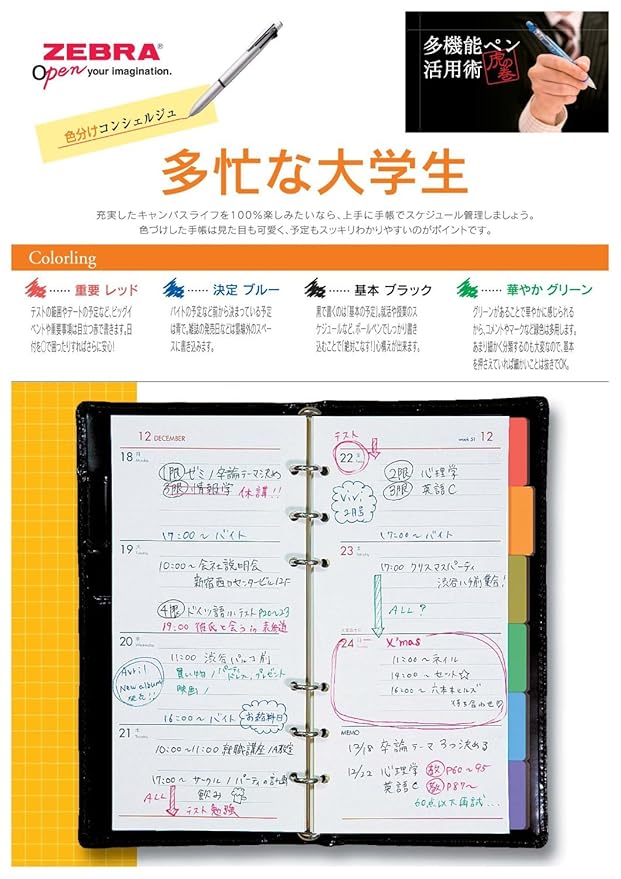 ZEBRA®
Open your imagination.
色分けコンシェルジュ
多機能ペン
活用術
虎の巻
多忙な大学生
充実したキャンパスライフを100%楽しみたいなら、上手に手帳でスケジュール管理しましょう。
色づけした手帳は見た目も可愛く、予定もスッキリわかりやすいのがポイントです。
Colorling
…… 重要 レッド
テストの範囲やデートの予定など、ビッグイ
ベントや重要事項は目立つ赤で書きます。日
付を○で囲ったりすればさらに安心!
…… 決定 ブルー
バイトの予定など前から決まっている予定
は青で。雑誌の発売日などは罫線外のスペー
スに書き込みます。
…… 基本 ブラック
黒で書くのは「基本の予定」。就活や授業のス
ケジュールなど、ボールペンでしっかり書き
込むことで「絶対こなす!」心構えが出来ます。
…… 華やか グリーン
グリーンがあることで華やかに感じられる
から、コメントやマークなど緑色は多用します。
あまり細かく分類するのも大変なので、基本
を押さえていれば細かいことは抜きでOK。
12 DECEMBER
18 月
Monday
1限 ゼミ / 卒論テーマ決め
3限 情報学 休講!!
17:00〜 バイト
19 火
Tuesday
10:00〜 会社説明会
新宿西口センタービル12F
4限 ドイツ語 小テスト P20〜23
19:00 彼氏と会う in 表参道
20 水
Wednesday
11:00 渋谷パルコ前
買い物 / パーティドレス、プレゼント
映画!
Avril
New album
発売!!
16:00〜 バイト
お給料日
21 木
10:00〜11:00 就職講座 /A教室
17:00〜 サークル / パーティの計画
飲み
ALL
テスト勉強
week 51 12
テスト
22 金
2限 心理学
3限 英語C
ViVi
2月号
17:00〜 バイト
23 土
17:00 クリスマスパーティ
渋谷ハチ前集合!
ALL?
24 日
X'mas
11:00〜 ネイル
14:00〜 セット☆
16:00〜 六本木ヒルズ
待ち合わせ♡
MEMO
12/18 卒論テーマ 3つ決める
12/22 心理学 教 P60〜95
英語C 教 P87〜
60点以下再試...